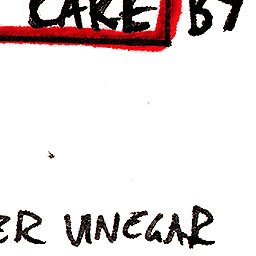 CARE BY
ER VINEGAR